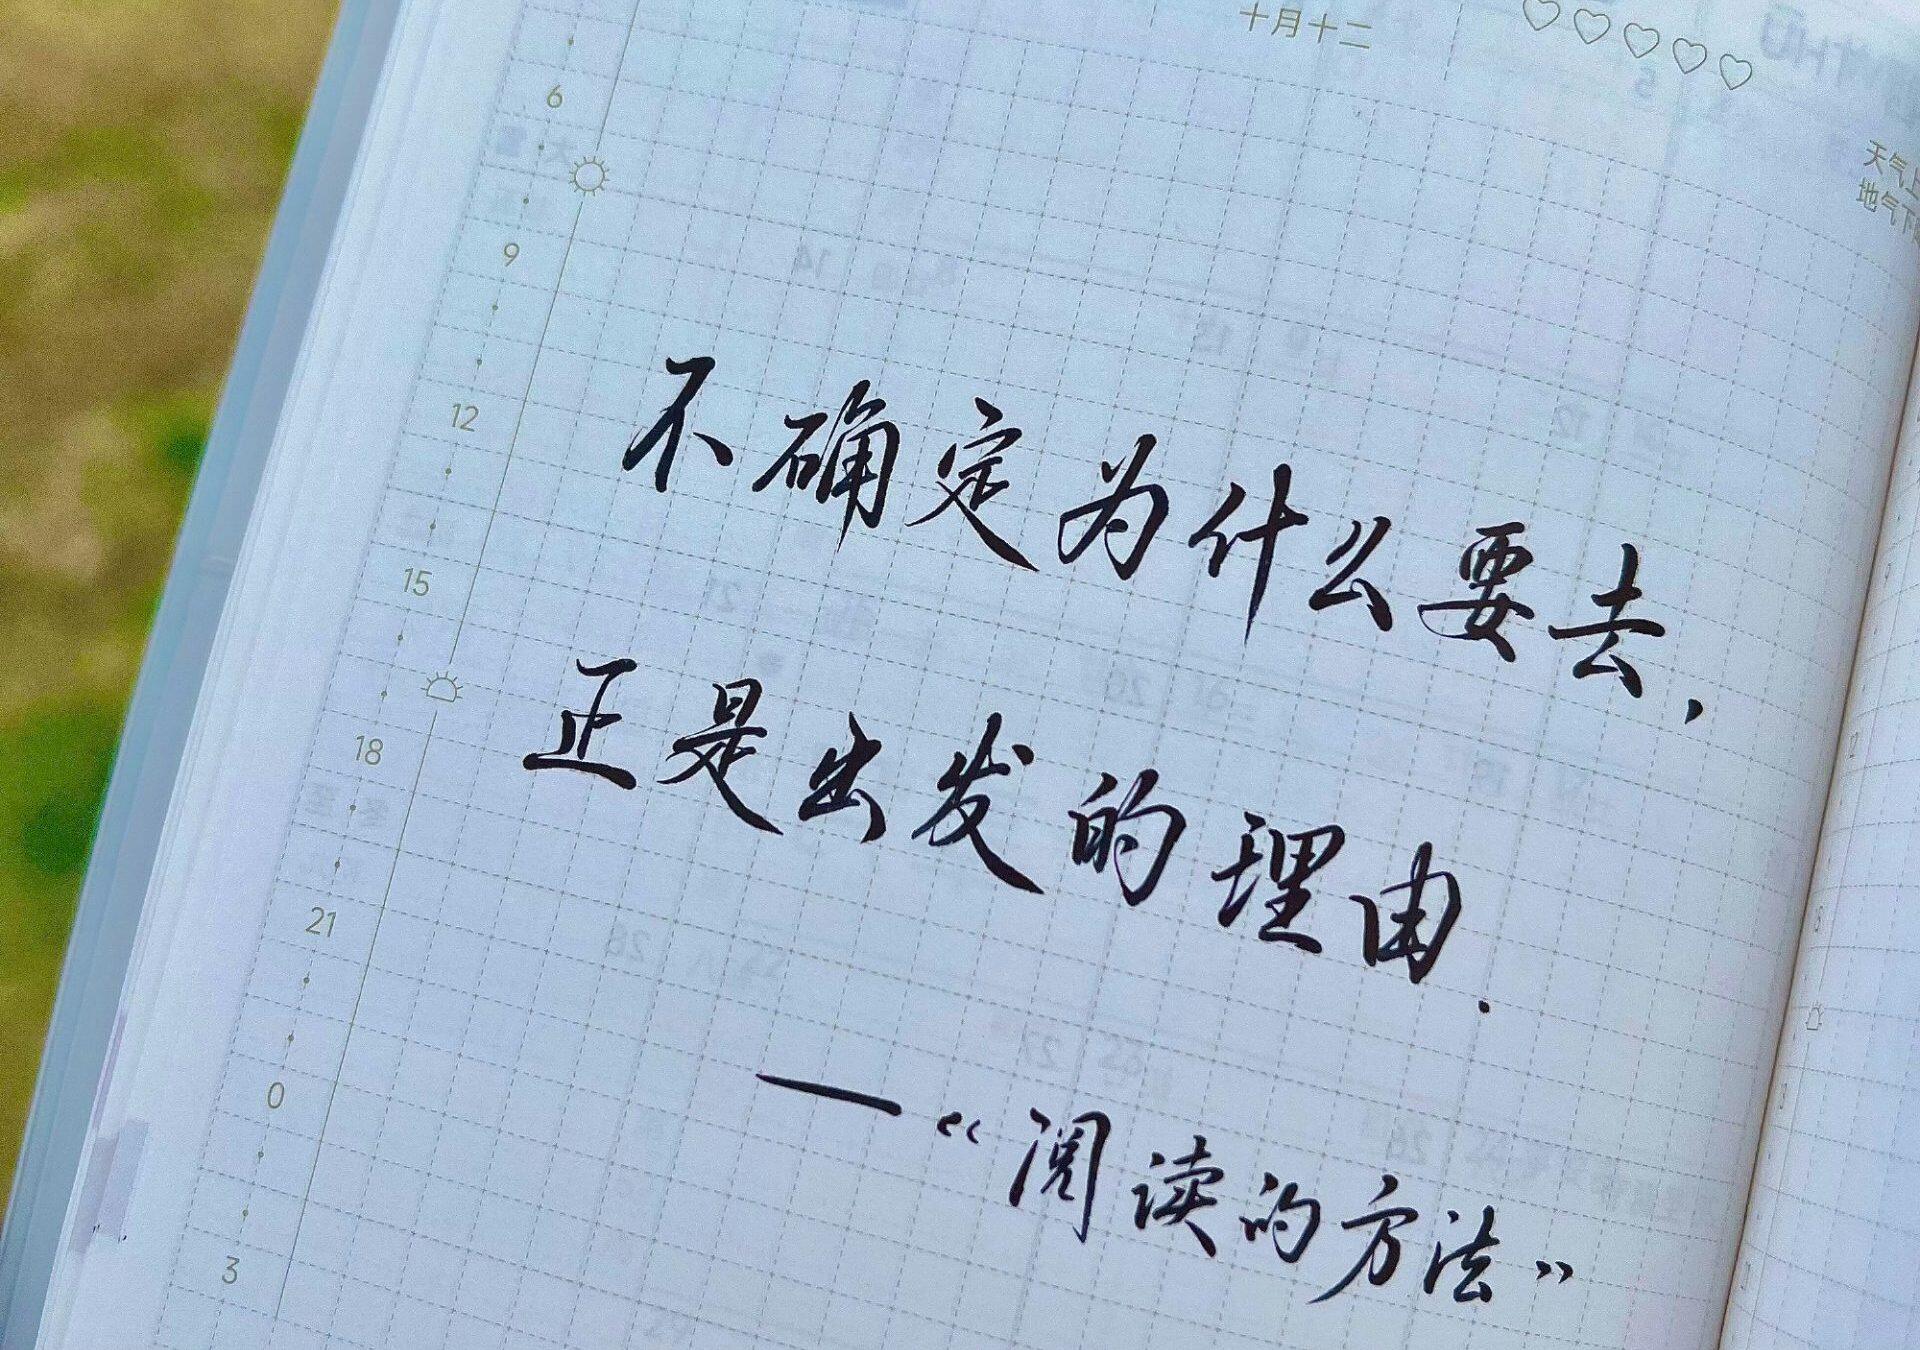 十月十二
天气上
地气下
6
9
12
15
18
21
0
3
不确定为什么要去，
正是出发的理由.
—《阅读的方法》